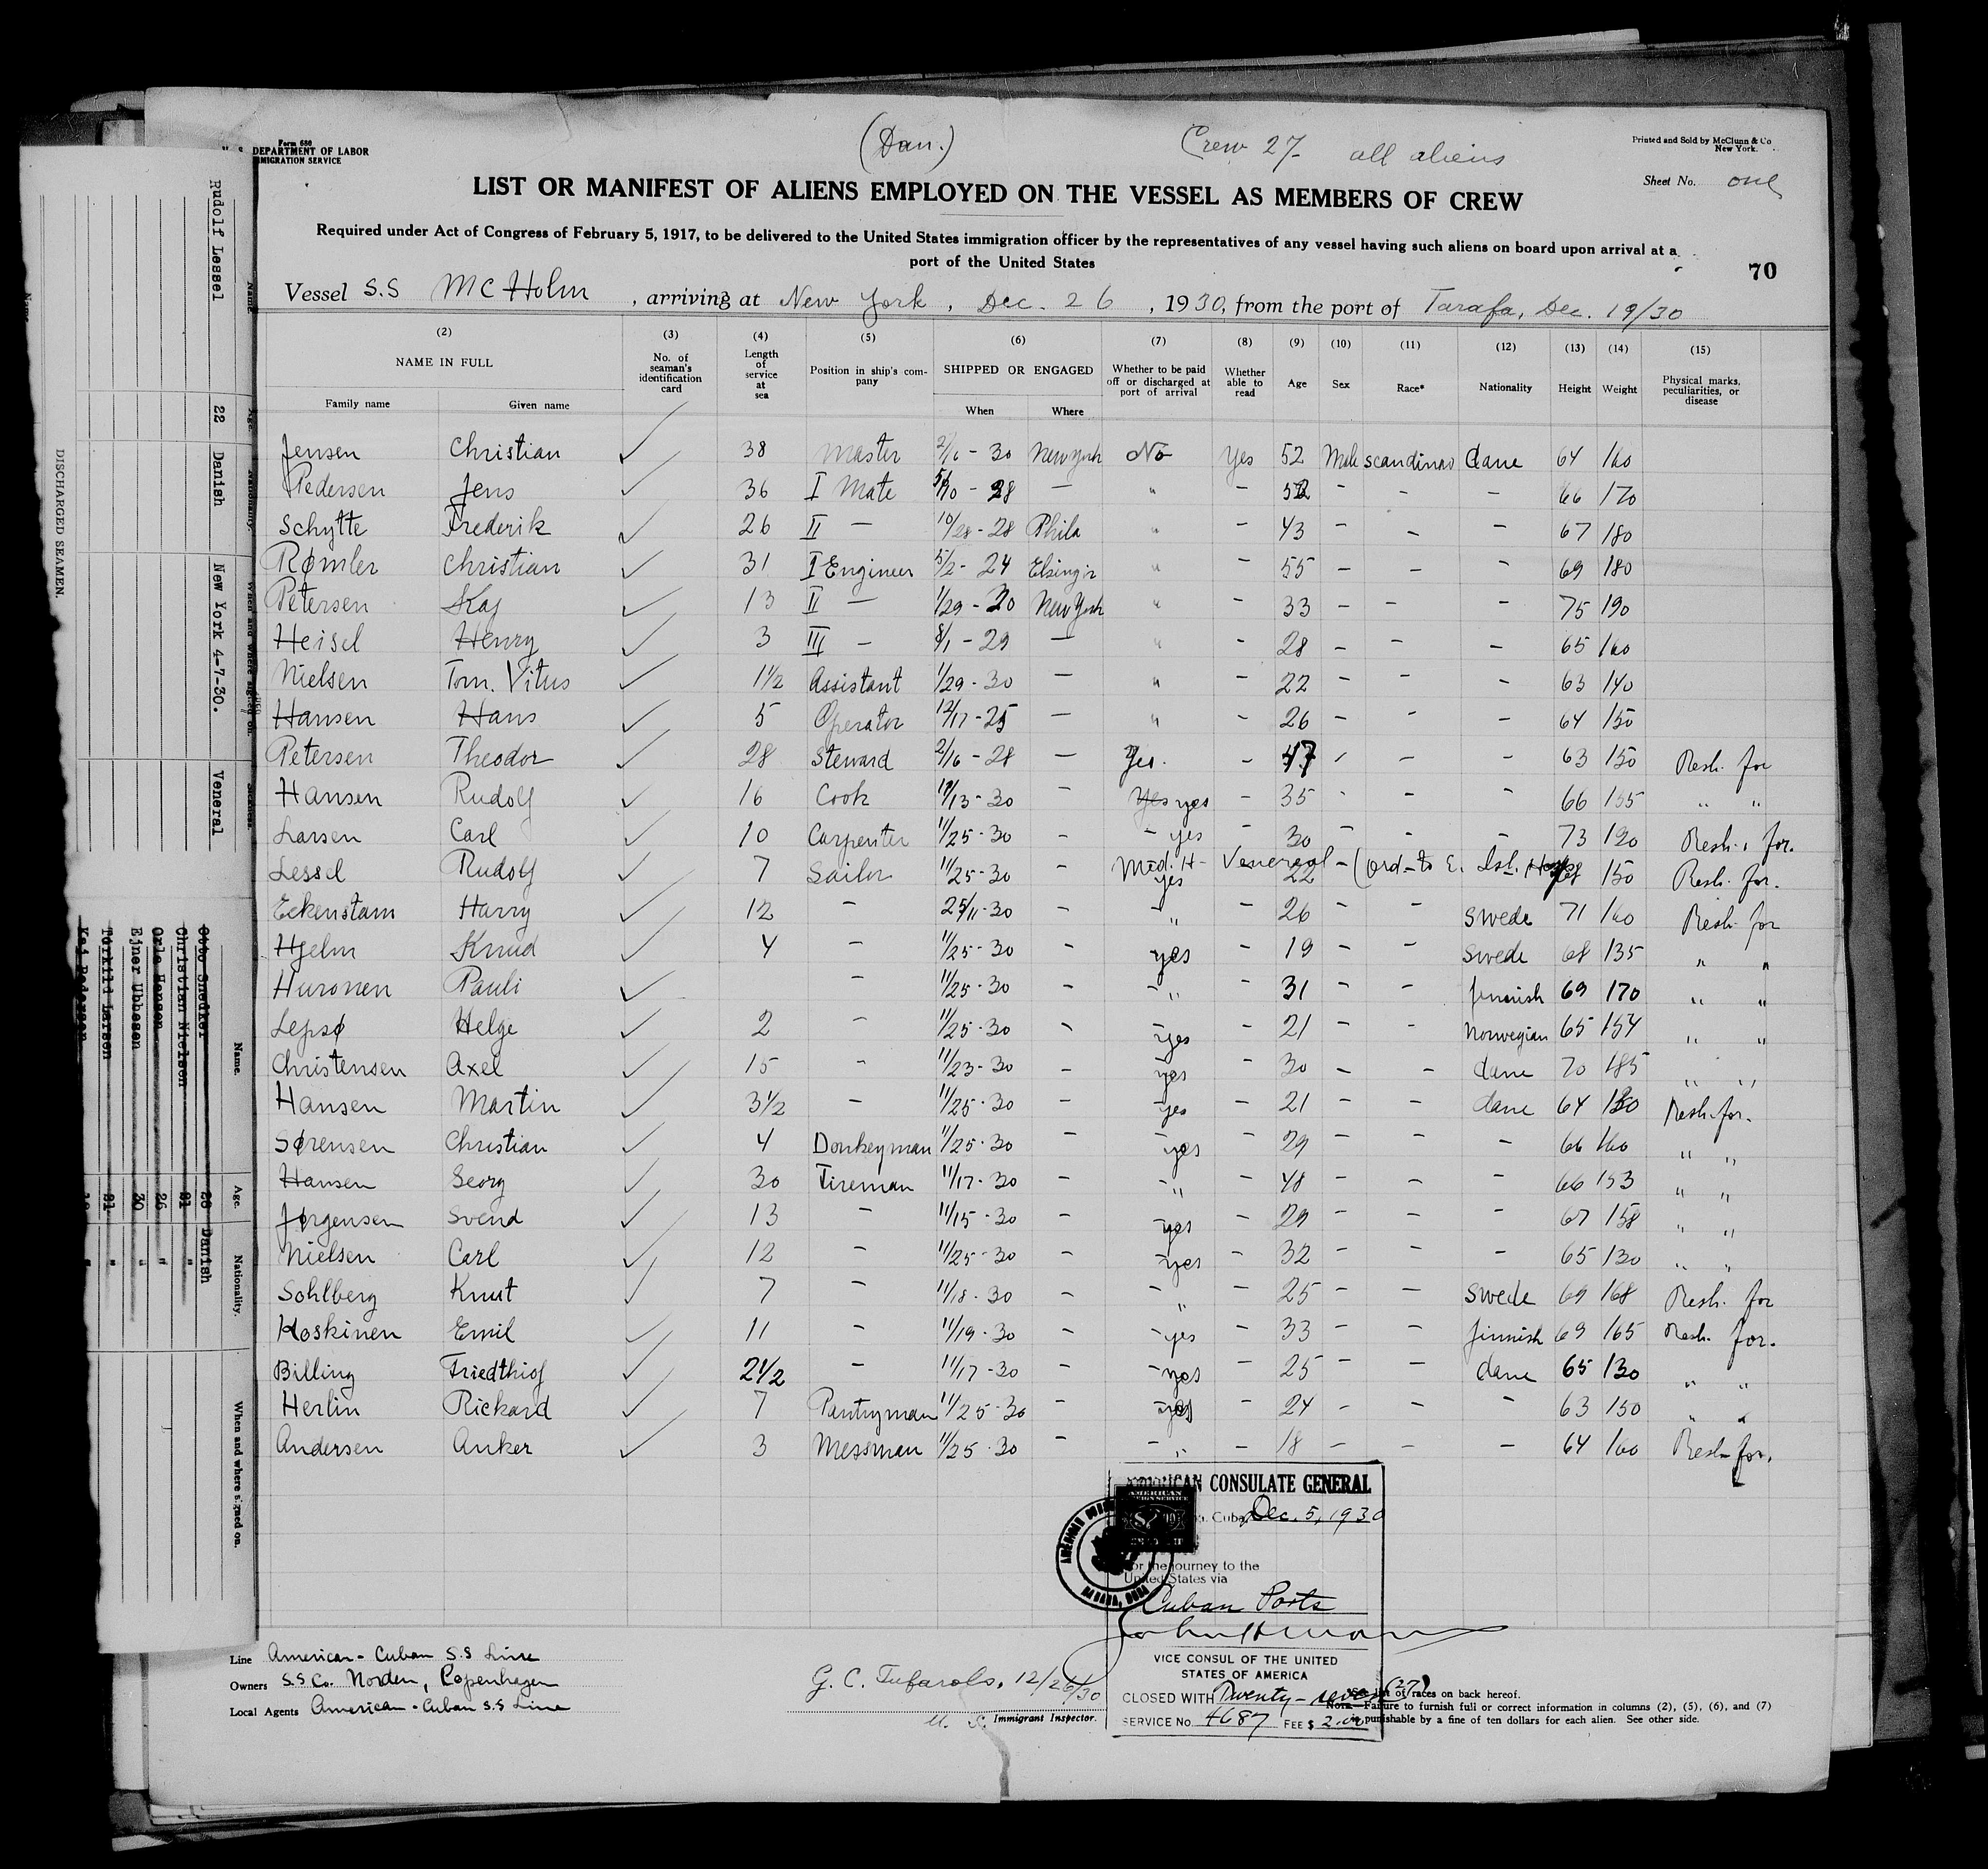 Form 680
U. S. DEPARTMENT OF LABOR
IMMIGRATION SERVICE
(Dan.)
Crew 27 all aliens
Printed and Sold by McClunn & Co
New York.
Sheet No. one
LIST OR MANIFEST OF ALIENS EMPLOYED ON THE VESSEL AS MEMBERS OF CREW
Required under Act of Congress of February 5, 1917, to be delivered to the United States immigration officer by the representatives of any vessel having such aliens on board upon arrival at a
port of the United States
70
Vessel S.S Mc Holm, arriving at New York, Dec. 26, 1930, from the port of Tarafa, Dec. 19/30
(2) (3) (4) (5) (6) (7) (8) (9) (10) (11) (12) (13) (14) (15)
NAME IN FULL No. of seaman's identification card Length of service at sea Position in ship's company SHIPPED OR ENGAGED Whether to be paid off or discharged at port of arrival Whether able to read Age Sex Race* Nationality Height Weight Physical marks, peculiarities, or disease
Family name Given name When Where
Jensen Christian 38 Master 2/16 - 30 New York No Yes 52 Male scandinav dane 64 160
Pedersen Jens 36 I Mate - 28 — " - 52 - - - 66 170
Schytte Frederik 26 II — 10/28 - 28 Phila " - 43 - - - 67 180
Rømler Christian 31 I Engineer 5/2 - 24 Elsingr " - 55 - - - 69 180
Petersen Kaj 13 II — 1/29 - 30 New York " - 33 - - - 75 190
Heisel Henry 3 III - 8/1 - 29 — " - 28 - - - 65 160
Nielsen Tom. Vitus 1 1/2 Assistant 1/29 - 30 — " - 22 - - - 63 140
Hansen Hans 5 Operator 12/17 - 25 — " - 26 - - - 64 150
Petersen Theodor 28 Steward 2/16 - 28 — Yes. - 47 - - - 63 150 Resh. for
Hansen Rudolf 16 Cook /13 - 30 - Yes yes - 35 - - - 66 155 " "
Larsen Carl 10 Carpenter 11/25 - 30 - - yes - 30 - - - 73 190 Resh. for.
Lessel Rudolf 7 Sailor 11/25 - 30 - Med. H- Venereal - (ord - to E. Isl. Hosp) yes 22 68 150 Resh. for.
Eckenstam Harry 12 - 25/11 - 30 - - " - 26 - - Swede 71 160 Resh. for
Hjelm Knud 4 - 11/25 - 30 - yes - 19 - - Swede 68 135 " "
Huronen Pauli - 11/25 - 30 - - " - 31 - - finnish 69 170 " "
Lepsø Helge 2 - 11/25 - 30 - - yes - 21 - - norwegian 65 154 " "
Christensen Axel 15 - 11/23 - 30 - yes - 30 - - dane 70 185 " "
Hansen Martin 3 1/2 - 11/25 - 30 - - yes - 21 - - dane 64 Resh. for.
Sørensen Christian 4 Donkeyman 11/25 - 30 - - yes - 29 - - - 66 160 " "
Hansen Georg 30 Fireman 11/17 - 30 - - " - 48 - - - 66 153 " "
Jørgensen Svend 13 - 11/15 - 30 - yes - 29 - - - 67 158 " "
Nielsen Carl 12 - 11/25 - 30 - - yes - 32 - - - 65 130 " "
Sohlberg Knut 7 - 11/18 - 30 - - " - 25 - - Swede 69 168 Resh. for
Koskinen Emil 11 - 11/19 - 30 - - yes - 33 - - finnish 69 165 Resh. for.
Billing Friedthiof 2 1/2 - 11/17 - 30 - yes - 25 - - dane 65 130 " "
Herlin Rickard 7 Pantryman 11/25 - 30 - - yes - 24 - - - 63 150 " "
Andersen Anker 3 Messman 11/25 - 30 - - " - 18 - - - 64 160 Resh. for.
AMERICAN CONSULATE GENERAL
Cuba, Dec. 5, 1930
For the journey to the
United States via
Cuban Ports
VICE CONSUL OF THE UNITED
STATES OF AMERICA
CLOSED WITH Twenty-seven (27)
SERVICE No. 4687 FEE $ 2.00
HABANA, CUBA
Line American - Cuban S.S Line
Owners S.S Co. Norden, Copenhagen
Local Agents American - Cuban S.S Line
G. C. Tufarolo, 12/26/30
U. S. Immigrant Inspector.
*See list of races on back hereof.
Note.—Failure to furnish full or correct information in columns (2), (5), (6), and (7)
is punishable by a fine of ten dollars for each alien. See other side.
DISCHARGED SEAMEN.
Name Age. Nationality. When and where signed on.
Rudolf Lessel 22 Danish New York 4-7-30. Veneral
Name. Age. Nationality. When and where signed on.
Otto Snedker Danish
Christian Nielsen "
Orla Hansen 26 "
Ejner Ubbesen 30 "
Torkild Larsen "
Kaj Pedersen "